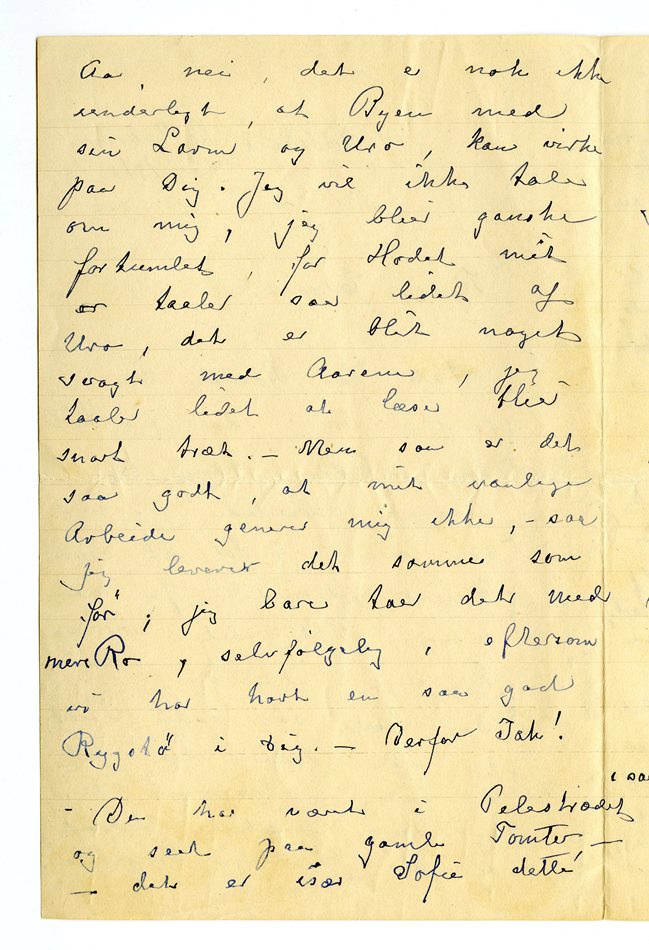 Aa, nei, det er nok ikke
underligt, at Byen med
sin Larm og Uro, kan virke
paa Dig. Jeg vil ikke tale
om mig, jeg blier ganske
fortumlet, for Hodet mit
er taaler saa lidet af
Uro, det er blit noget
svagt med Aarene, jeg
taaler lidet at læse blier
snart træt. – Men saa er det
saa godt, at mit vanlige
Arbeide generer mig ikke, – saa
jeg leverer det samme som
før; jeg bare taer det med
mere Ro, selvfølgelig, eftersom
vi har havt en saa god
Rygstø i Dig. – Derfor Tak!
i saa
– Du har været i Pelestrædet
og seet paa gamle Tomter, –
– det er især Sofie dette